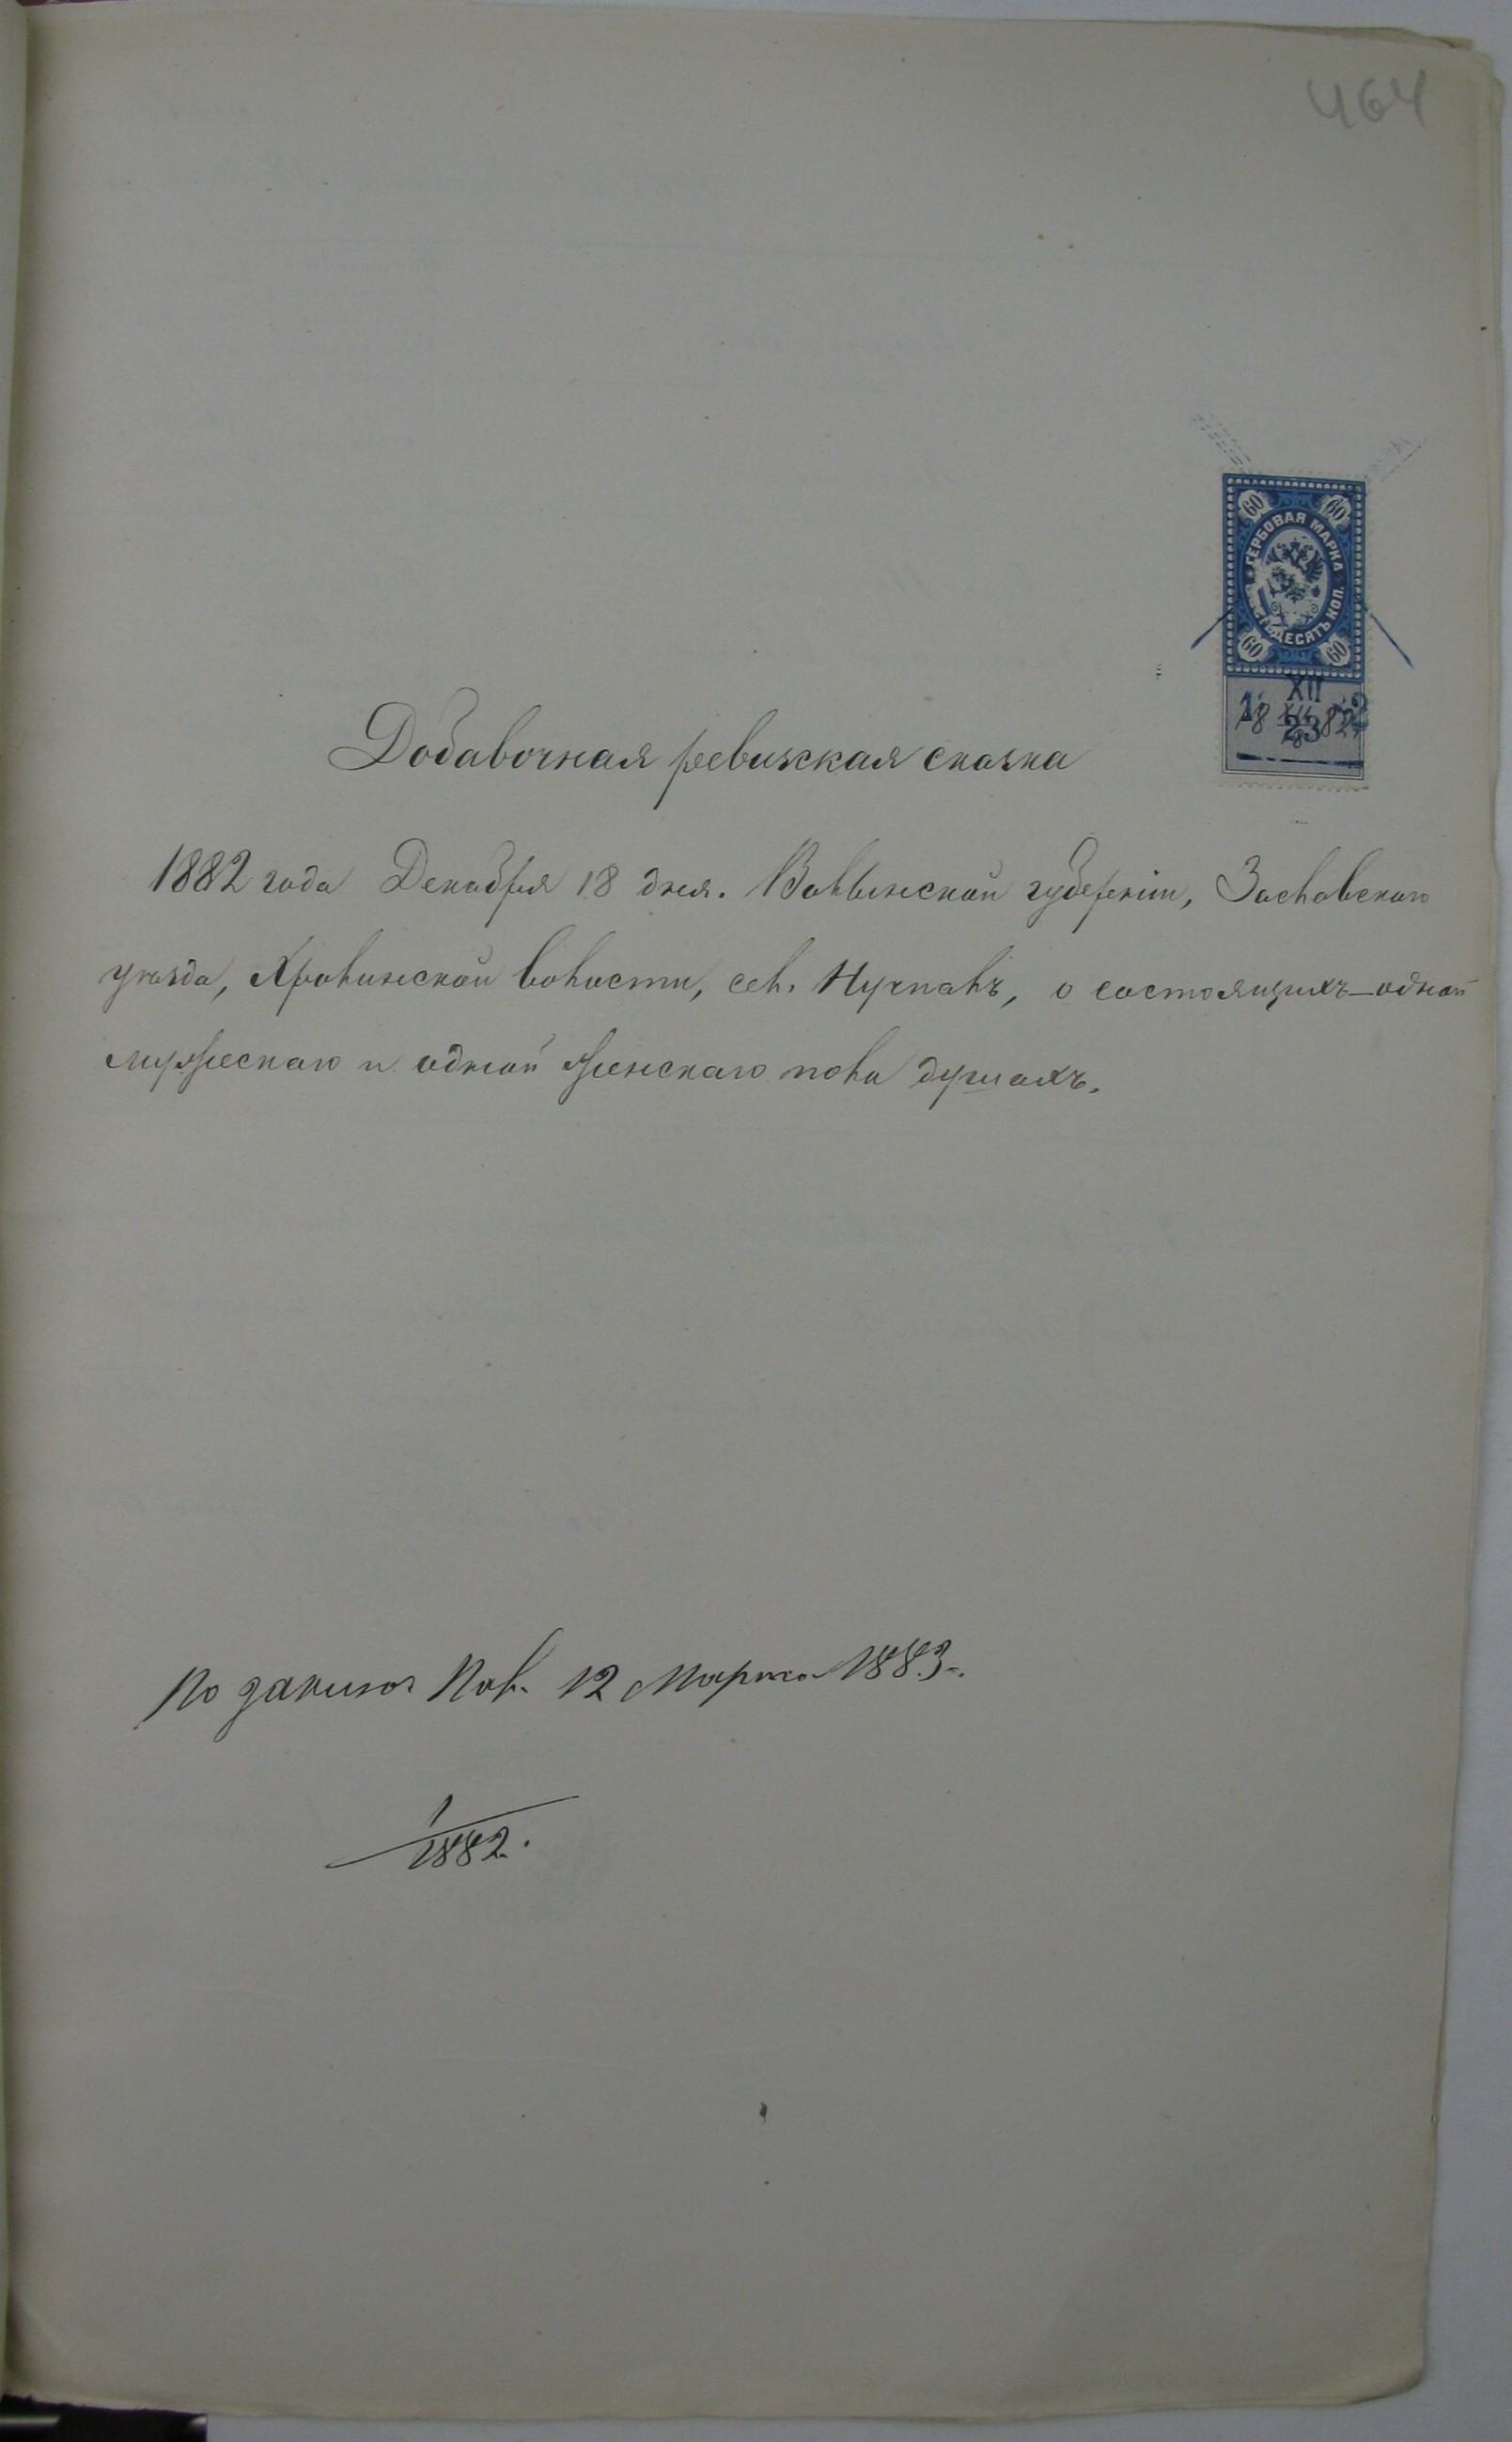 464
60 60
ГЕРБОВАЯ МАРКА
ШЕСТЬДЕСЯТЪ КОП.
60 60
XII
23
Добавочная ревизская сказка
1882 года Декабря 18 дня. Волынской губерніи, Заславскаго
уѣзда, Хролинской волости, сел. Нучпалъ, о состоящихъ—одной
мужескаго и одной женскаго пола душахъ.
12 Марта 1883.
1
1882.